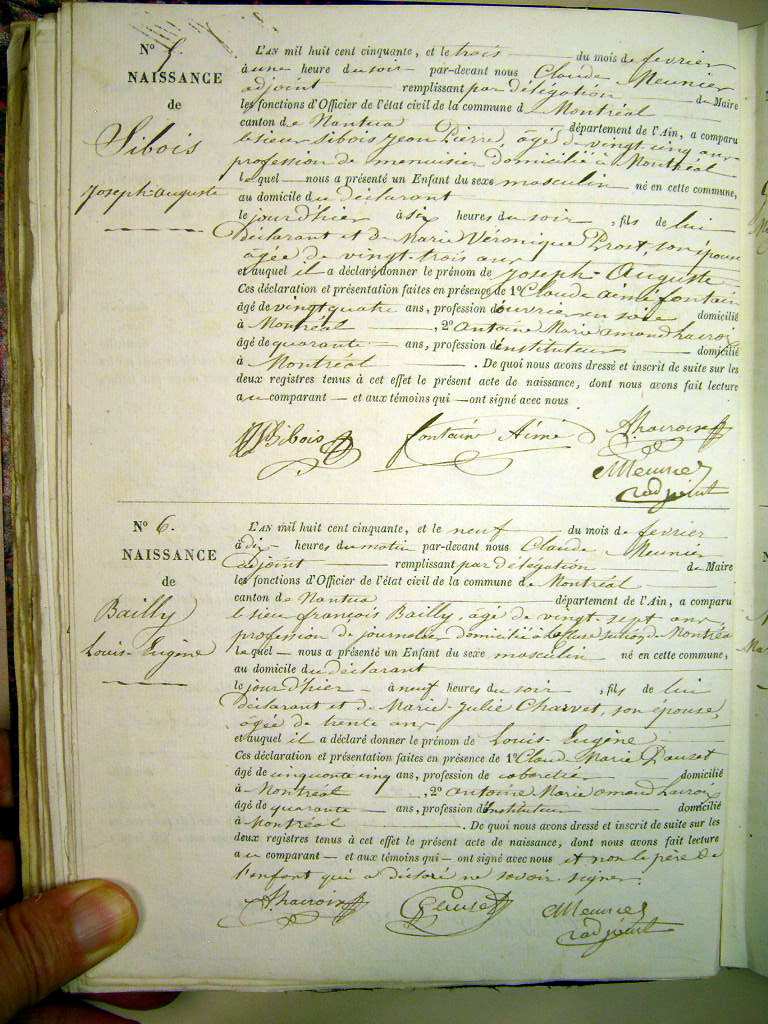 N° 5.
NAISSANCE
de
Sibois
Joseph-Auguste
L'AN mil huit cent cinquante, et le trois du mois de fevrier
à une heure du soir par-devant nous Claude Meunier
adjoint remplissant par délégation de Maire
les fonctions d'Officier de l'état civil de la commune de Montréal
canton de Nantua département de l'Ain, a comparu
le sieur Sibois Jean Pierre, âgé de vingt cinq ans
profession de menuisier domicilié à Montréal
lequel — nous a présenté un Enfant du sexe masculin né en cette commune,
au domicile du déclarant
le jour d'hier à six heures du soir, fils de lui
déclarant et de Marie Véronique Prost, son épouse
agée de vingt-trois ans
et auquel il a déclaré donner le prénom de Joseph-Auguste
Ces déclaration et présentation faites en présence de 1° Claude aimé fontain
âgé de vingt quatre ans, profession d'ouvrier en soie domicilié
à Montréal, 2° antoine Marie amand
âgé de quarante ans, profession d'instituteur domicilié
à Montréal. De quoi nous avons dressé et inscrit de suite sur les
deux registres tenus à cet effet le présent acte de naissance, dont nous avons fait lecture
au comparant — et aux témoins qui — ont signé avec nous
Sibois fontaine Aimé
Meunier
adjoint
N° 6.
NAISSANCE
de
Bailly
Louis-Eugène
L'AN mil huit cent cinquante, et le neuf du mois de fevrier
à dix heures du matin par-devant nous Claude Meunier
adjoint remplissant par délégation de Maire
les fonctions d'Officier de l'état civil de la commune de Montréal
canton de Nantua département de l'Ain, a comparu
le sieur françois Bailly, âgé de vingt sept ans,
profession de journalier domicilié à de Montréal
lequel — nous a présenté un Enfant du sexe masculin né en cette commune,
au domicile du déclarant
le jour d'hier — à neuf heures du soir, fils de lui
déclarant et de Marie-Julie Charvet, son épouse,
agée de trente ans
et auquel il a déclaré donner le prénom de Louis-Eugène
Ces déclaration et présentation faites en présence de 1° Claude Marie
âgé de cinquante cinq ans, profession de domicilié
à Montréal, 2° antoine Marie amand
âgé de quarante ans, profession d'instituteur domicilié
à Montréal. De quoi nous avons dressé et inscrit de suite sur les
deux registres tenus à cet effet le présent acte de naissance, dont nous avons fait lecture
au comparant — et aux témoins qui — ont signé avec nous et non le père de
l'enfant qui a déclaré ne savoir signer.
Meunier
adjoint